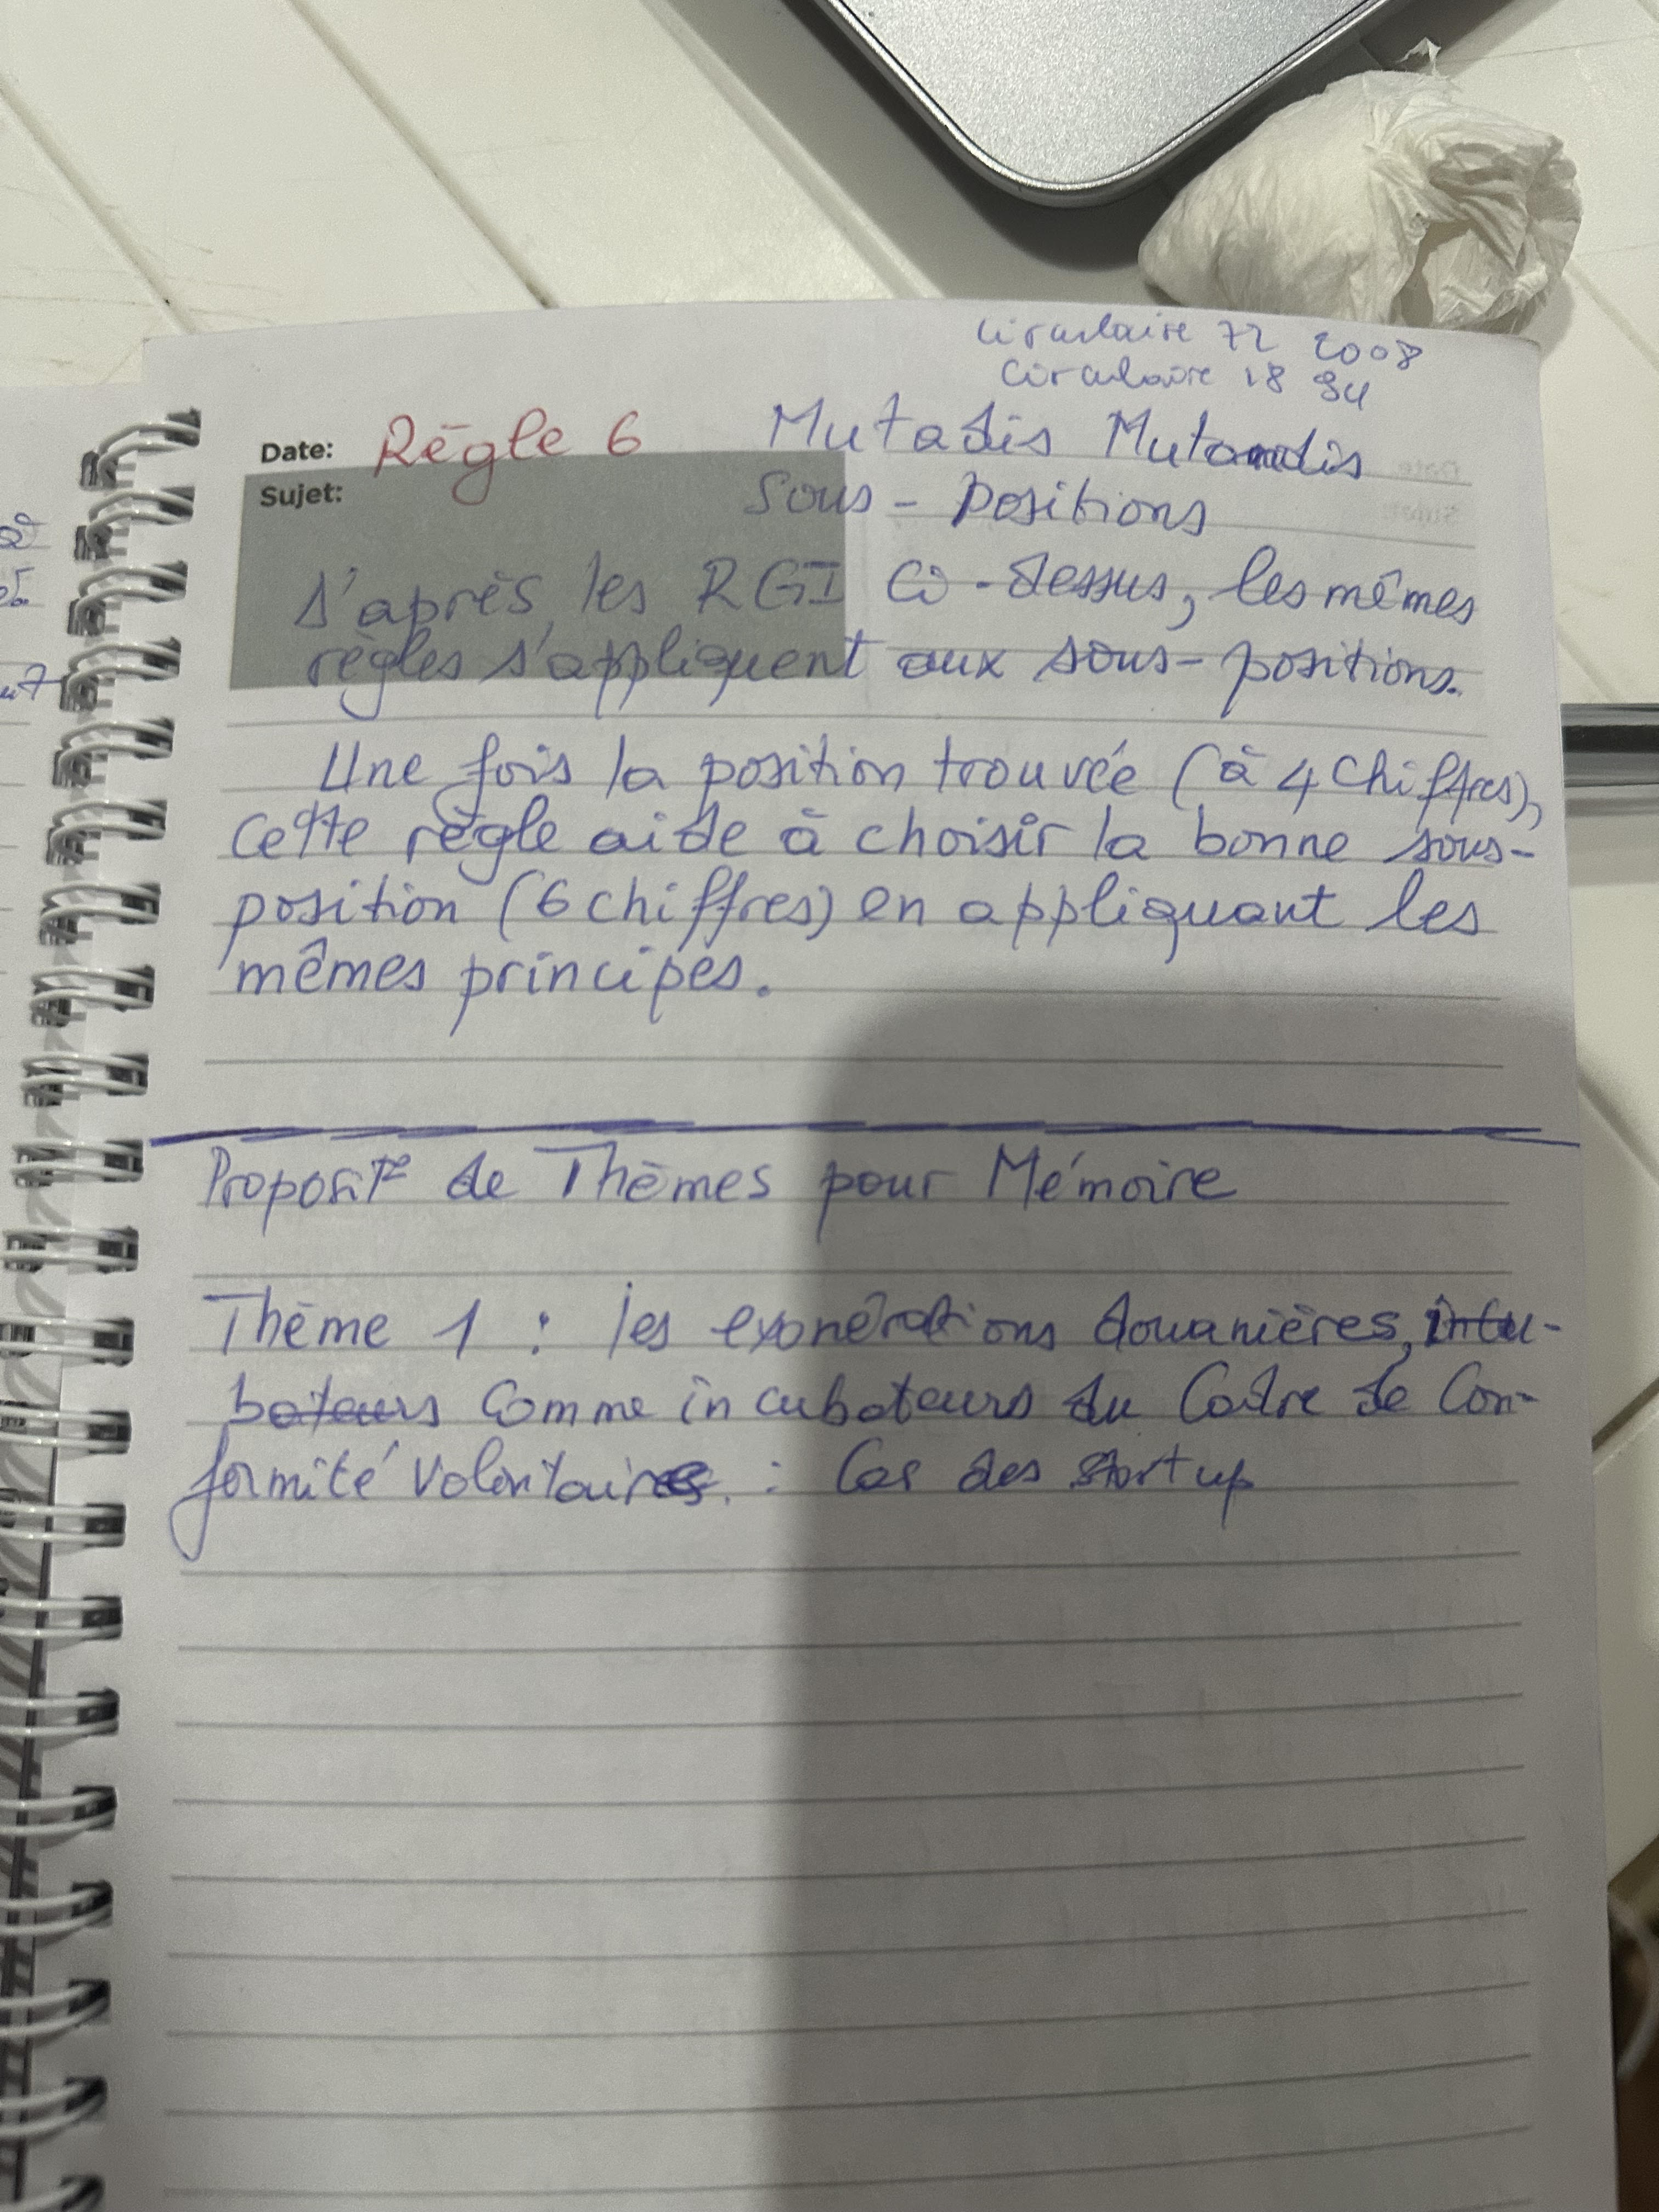 Circulaire 72 2008
Circulaire 18 94
Date: Règle 6 Mutadis Mutandis
Sujet: Sous - Positions
D'après les RGI Ci-dessus, les mêmes
règles s'appliquent aux sous-positions.
Une fois la position trouvée (à 4 Chiffres),
cette règle aide à choisir la bonne sous-
position (6 chiffres) en appliquant les
mêmes principes.
Proposit° de Thèmes pour Mémoire
Thème 1 : les exonérations douanières,
Comme incubateurs du Cadre de Con-
formité Volontaire : Cas des startup